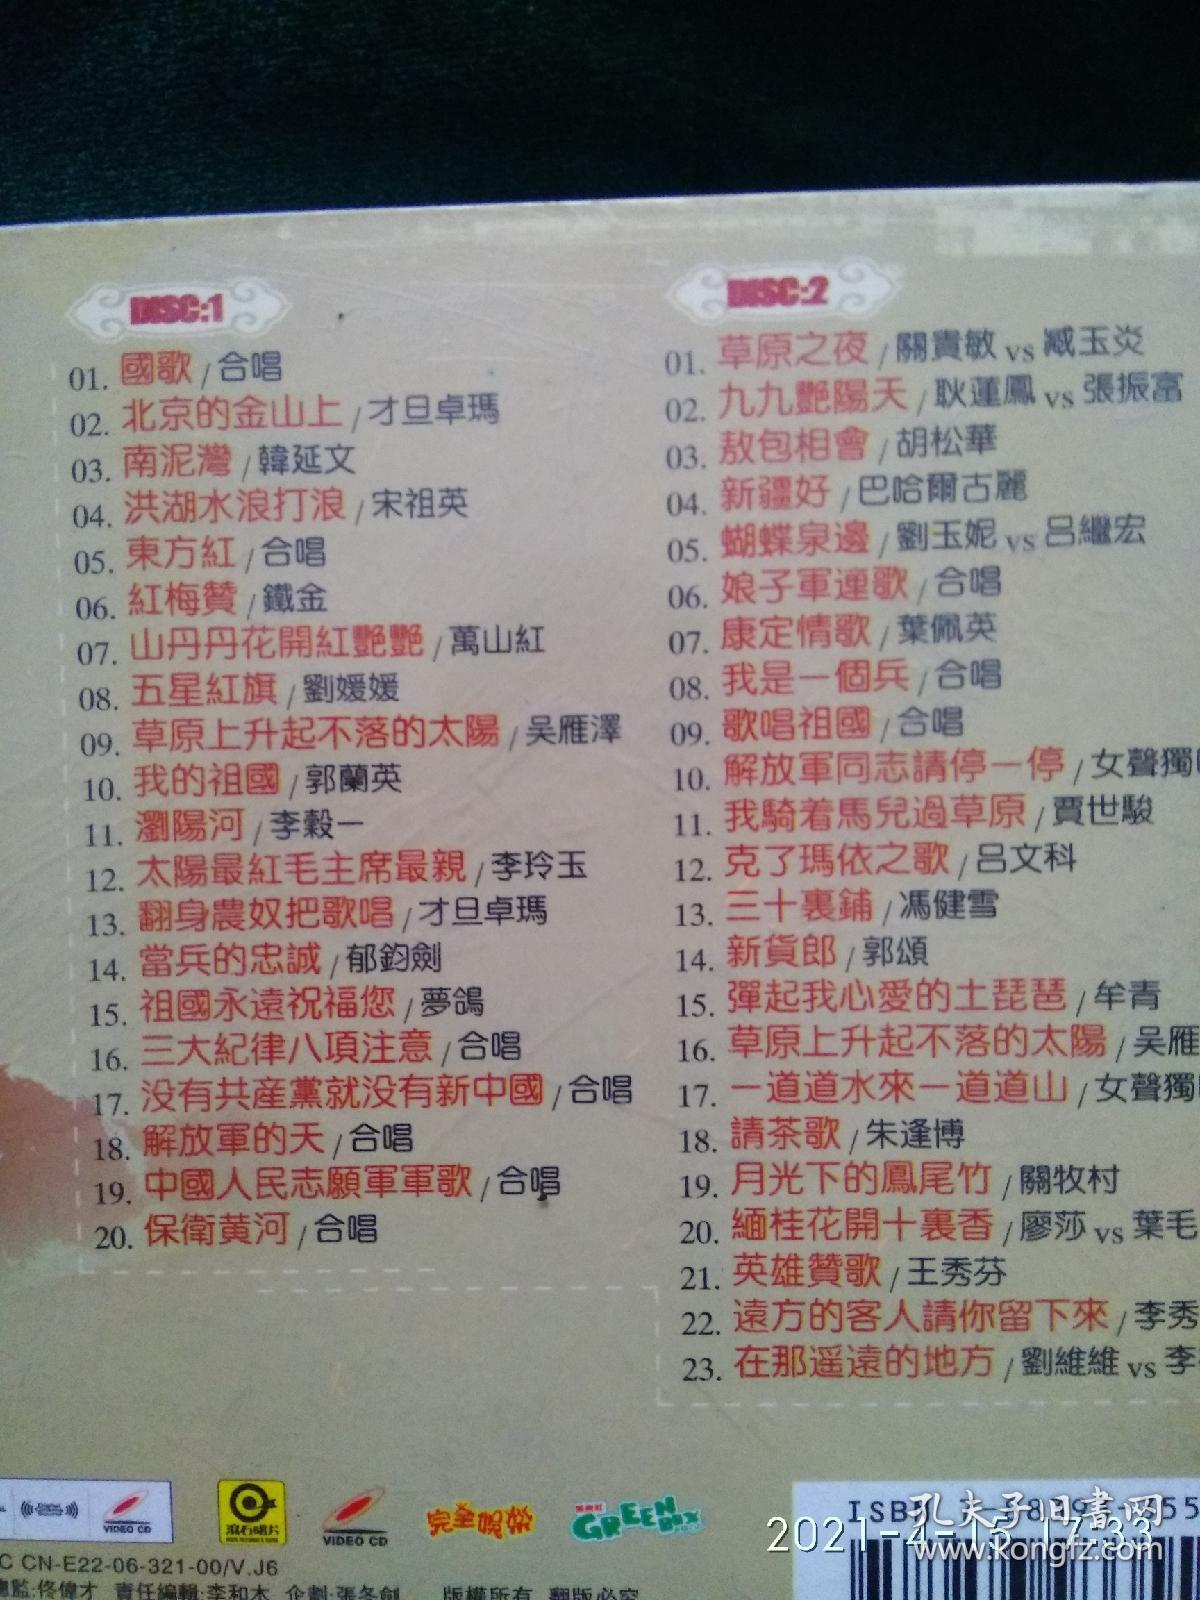 DISC:1
01. 國歌 / 合唱
02. 北京的金山上 / 才旦卓瑪
03. 南泥灣 / 韓延文
04. 洪湖水浪打浪 / 宋祖英
05. 東方紅 / 合唱
06. 紅梅贊 / 鐵金
07. 山丹丹花開紅艷艷 / 萬山紅
08. 五星紅旗 / 劉媛媛
09. 草原上升起不落的太陽 / 吴雁澤
10. 我的祖國 / 郭蘭英
11. 瀏陽河 / 李穀一
12. 太陽最紅毛主席最親 / 李玲玉
13. 翻身農奴把歌唱 / 才旦卓瑪
14. 當兵的忠誠 / 郁鈞劍
15. 祖國永遠祝福您 / 夢鴿
16. 三大紀律八項注意 / 合唱
17. 没有共産黨就没有新中國 / 合唱
18. 解放軍的天 / 合唱
19. 中國人民志願軍軍歌 / 合唱
20. 保衛黄河 / 合唱
DISC:2
01. 草原之夜 / 關貴敏 vs 臧玉炎
02. 九九艷陽天 / 耿蓮鳳 vs 張振富
03. 敖包相會 / 胡松華
04. 新疆好 / 巴哈爾古麗
05. 蝴蝶泉邊 / 劉玉妮 vs 吕繼宏
06. 娘子軍連歌 / 合唱
07. 康定情歌 / 葉佩英
08. 我是一個兵 / 合唱
09. 歌唱祖國 / 合唱
10. 解放軍同志請停一停 / 女聲獨
11. 我騎着馬兒過草原 / 賈世駿
12. 克了瑪依之歌 / 吕文科
13. 三十裏鋪 / 馮健雪
14. 新貨郎 / 郭頌
15. 彈起我心愛的土琵琶 / 牟青
16. 草原上升起不落的太陽 / 吴雁
17. 一道道水來一道道山 / 女聲獨
18. 請茶歌 / 朱逢博
19. 月光下的鳳尾竹 / 關牧村
20. 緬桂花開十裏香 / 廖莎 vs 葉毛
21. 英雄贊歌 / 王秀芬
22. 遠方的客人請你留下來 / 李秀
23. 在那遥遠的地方 / 劉維維 vs 李
VIDEO CD
滾石唱片
VIDEO CD
完全娛樂
GREEN BOX
ISBN
2021-4-15 17:33
孔夫子旧書网
www.kongfz.com
C CN-E22-06-321-00/V.J6
總監:佟偉才 責任編輯:李和木 企劃:張冬劍 版權所有 翻版必究